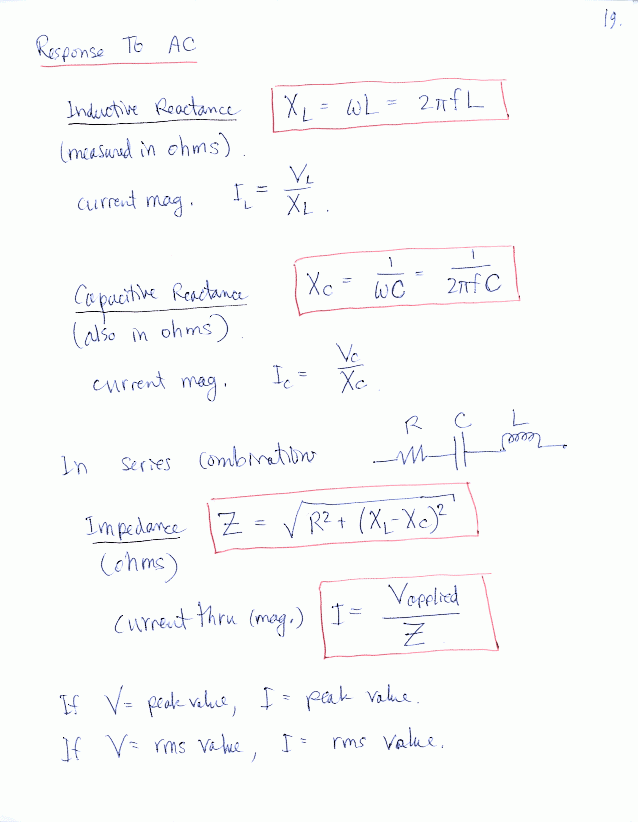 19.
Response To AC
Inductive Reactance X_L = ωL = 2πfL
(measured in ohms).
current mag. I_L = V_L / X_L .
Capacitive Reactance X_C = 1/ωC = 1/2πfC
(also in ohms).
current mag. I_C = V_C / X_C .
R C L
In series combinations
Impedance Z = √(R² + (X_L-X_C)²)
(ohms)
current thru (mag.) I = Vapplied / Z
If V= peak value, I = peak value.
If V= rms value, I = rms value.